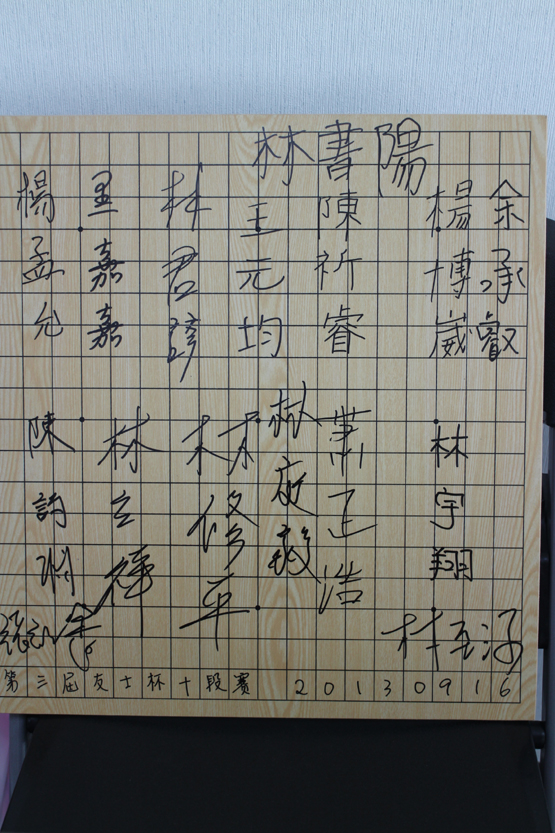 林書陽
余承叡
楊博崴
陳祈睿
王元均
林君諺
黑嘉嘉
楊孟允
林宇翔
蕭正浩
林修平
林立祥
陳詩淵
第三屆友士杯十段賽 20130916